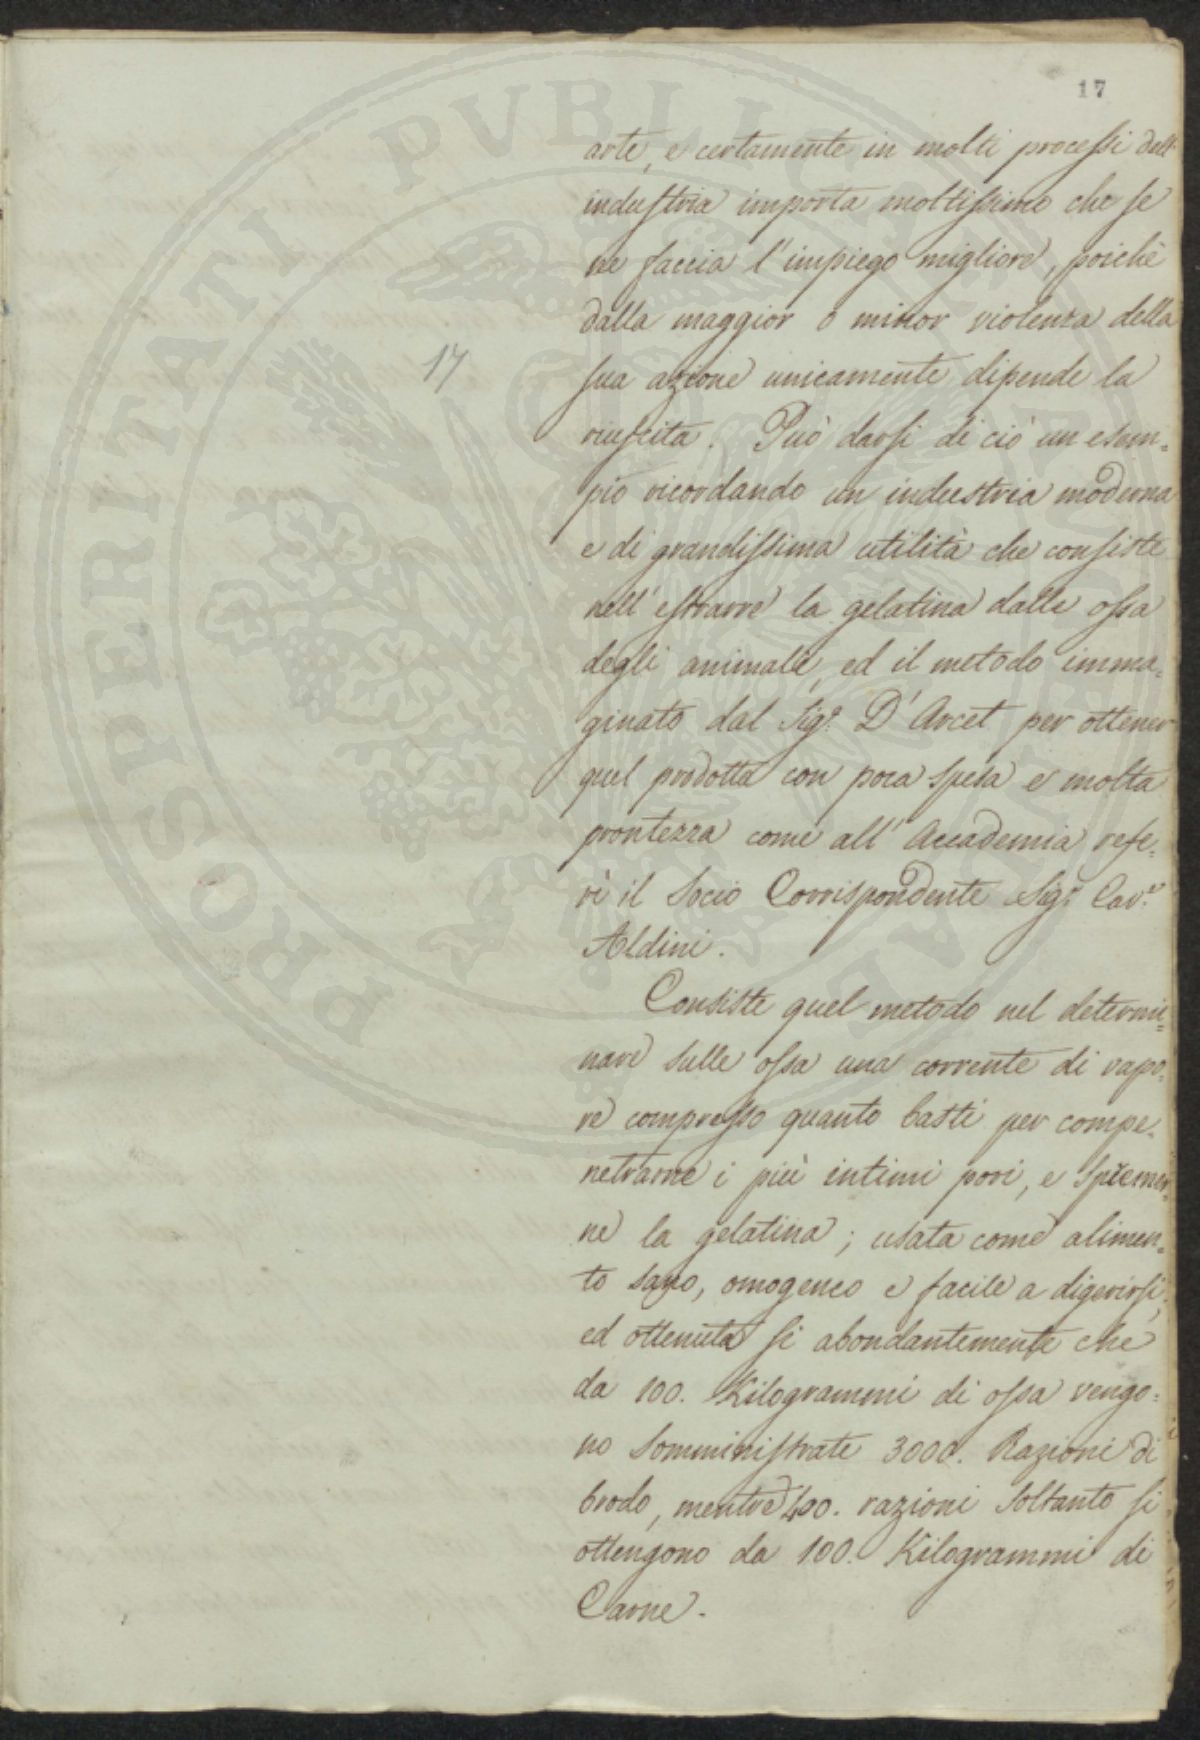 17
arte, e certamente in molti processi dell'
industria importa moltissimo che se
ne faccia l'impiego migliore, poichè
dalla maggior o minor violenza della
17
sua azione unicamente dipende la
riuscita. Può darsi di ciò un esem=
pio ricordando un industria moderna
e di grandissima utilità che consiste
nell'estrarre la gelatina dalle ossa
degli animali, ed il metodo imma=
ginato dal Sigr. D'Arcet per ottener
quel prodotto con poca spesa e molta
prontezza come all'Accademia refe=
rì il Socio Corrispondente Sigr. Cav.e
Aldini.
Consiste quel metodo nel determi=
nare sulle ossa una corrente di vapo=
re compresso quanto basti per compe=
netrarne i più intimi pori, e spremer=
ne la gelatina; usata come alimen=
to sano, omogeneo e facile a digerirsi,
ed ottenuta si abondantemente che
da 100. Kilogrammi di ossa vengo=
no somministrate 3000. Razioni di
brodo, mentre 400. razioni soltanto si
ottengono da 100. Kilogrammi di
Carne.
PROSPERITATI PVBLICAE AVGENDAE